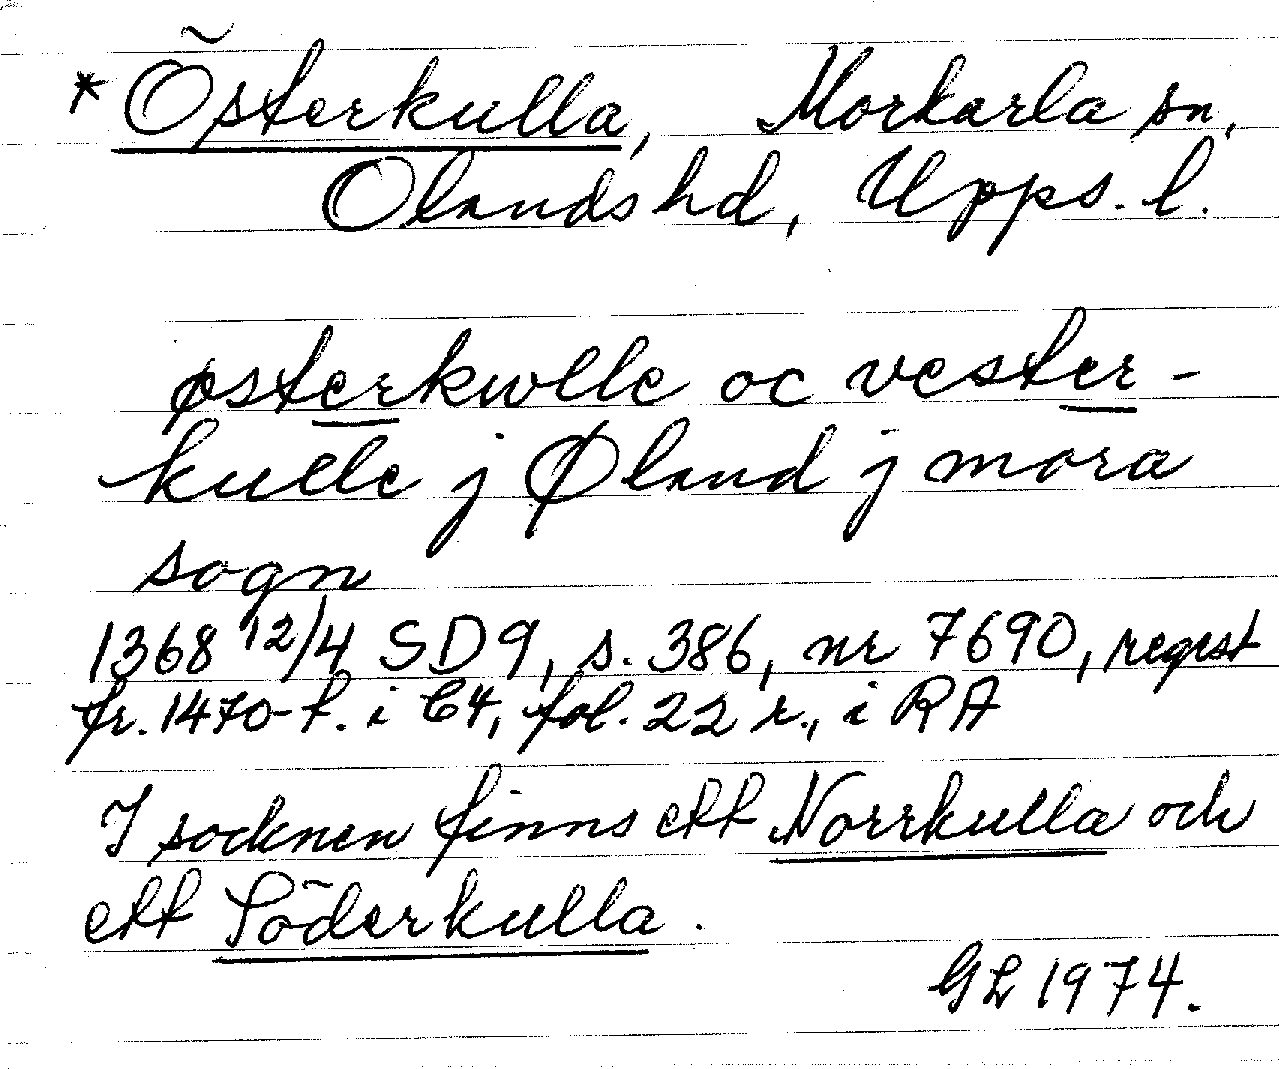 * Österkulla, Morkarla sn,
Olands hd, Upps. l.
østerkwlle oc vester-
kulle j Øland j mora
sogn
1368 12/4 SD 9, s. 386, nr 7690, regest
fr. 1470-t. i C4, fol. 22 r., i RA
I socknen finns ett Norrkulla och
ett Söderkulla.
GL 1974.